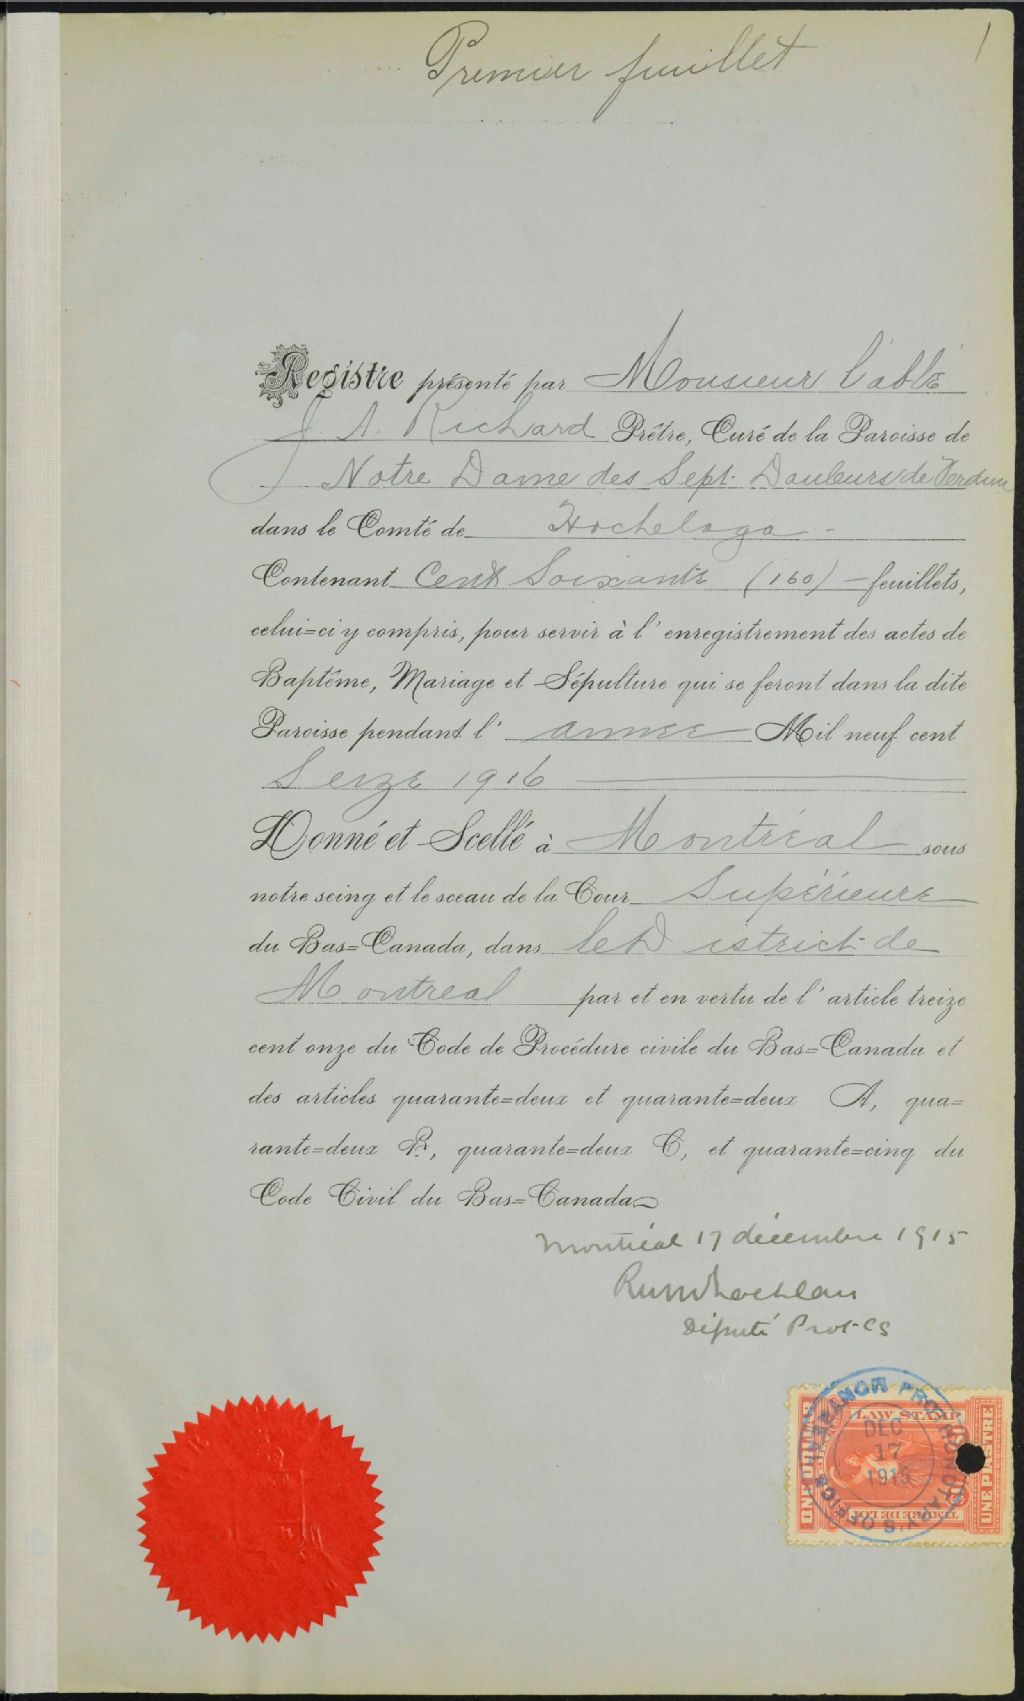 1
Premier feuillet
Registre présenté par Monsieur l'abbé
J. A. Richard Prêtre, Curé de la Paroisse de
Notre Dame des Sept. Douleurs de Verdun
dans le Comté de Hochelaga -
Contenant Cent Soixante (160) - feuillets,
celui=ci y compris, pour servir à l'enregistrement des actes de
Baptême, Mariage et Sépulture qui se feront dans la dite
Paroisse pendant l' année Mil neuf cent
Seize 1916
Donné et Scellé à Montréal sous
notre seing et le sceau de la Cour Supérieure
du Bas=Canada, dans le District de
Montreal par et en vertu de l'article treize
cent onze du Code de Procédure civile du Bas=Canada et
des articles quarante=deux et quarante=deux A, qua=
rante=deux B, quarante=deux C, et quarante=cinq du
Code Civil du Bas=Canada
Montréal 17 décembre 1915
Député Prot. CS
PROTHONOTARY'S OFFICE MONTREAL
LAW STAMP
DEC
17
1915
ONE DOLLAR
UNE PIASTRE
TIMBRE DE LOI